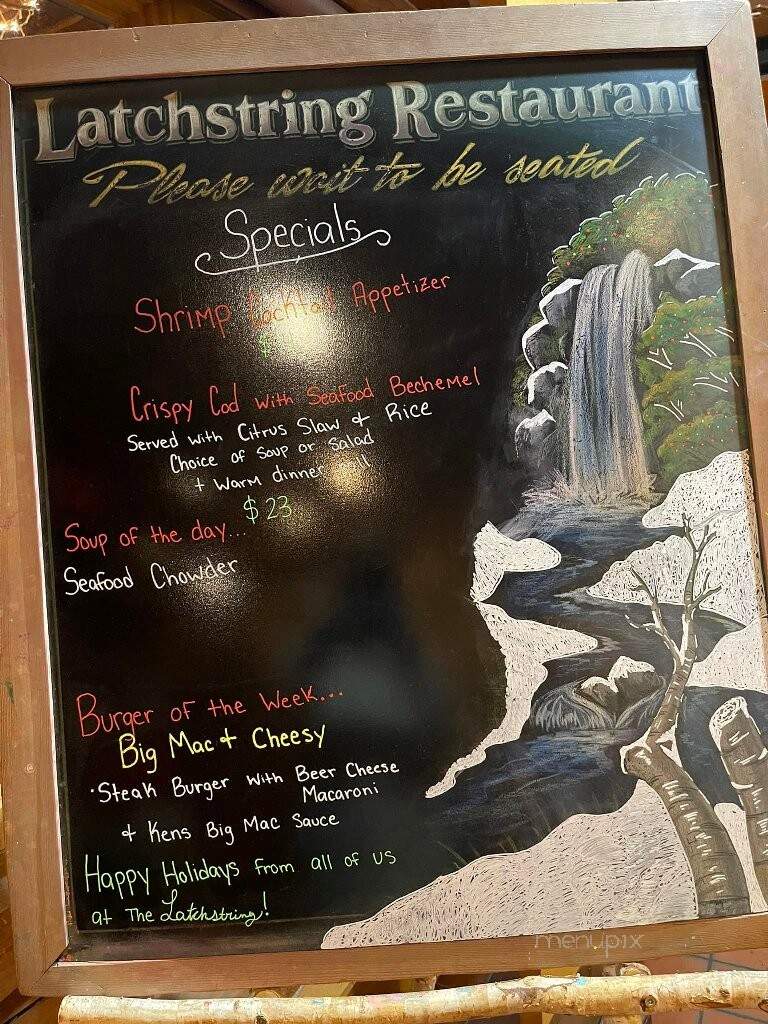 Latchstring Restaurant
Please wait to be seated
Specials
Shrimp Cocktail Appetizer
$
Crispy Cod with Seafood Bechemel
Served with Citrus Slaw & Rice
Choice of Soup or Salad
+ Warm dinner roll
$23
Soup of the day...
Seafood Chowder
Burger of the Week...
Big Mac & Cheesy
·Steak Burger with Beer Cheese
Macaroni
& Kens Big Mac Sauce
Happy Holidays from all of us
at The Latchstring!
menupix